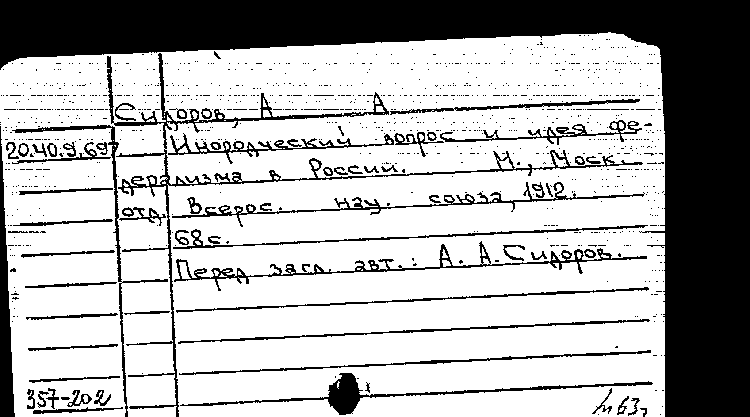 Сидоров, А А
20.40.9.697 Инородческий вопрос и идея фе-
дерализма в России. М., Моск.
отд. Всерос. нац. союза, 1912.
68с.
Перед загл. авт.: А. А. Сидоров.
357-202